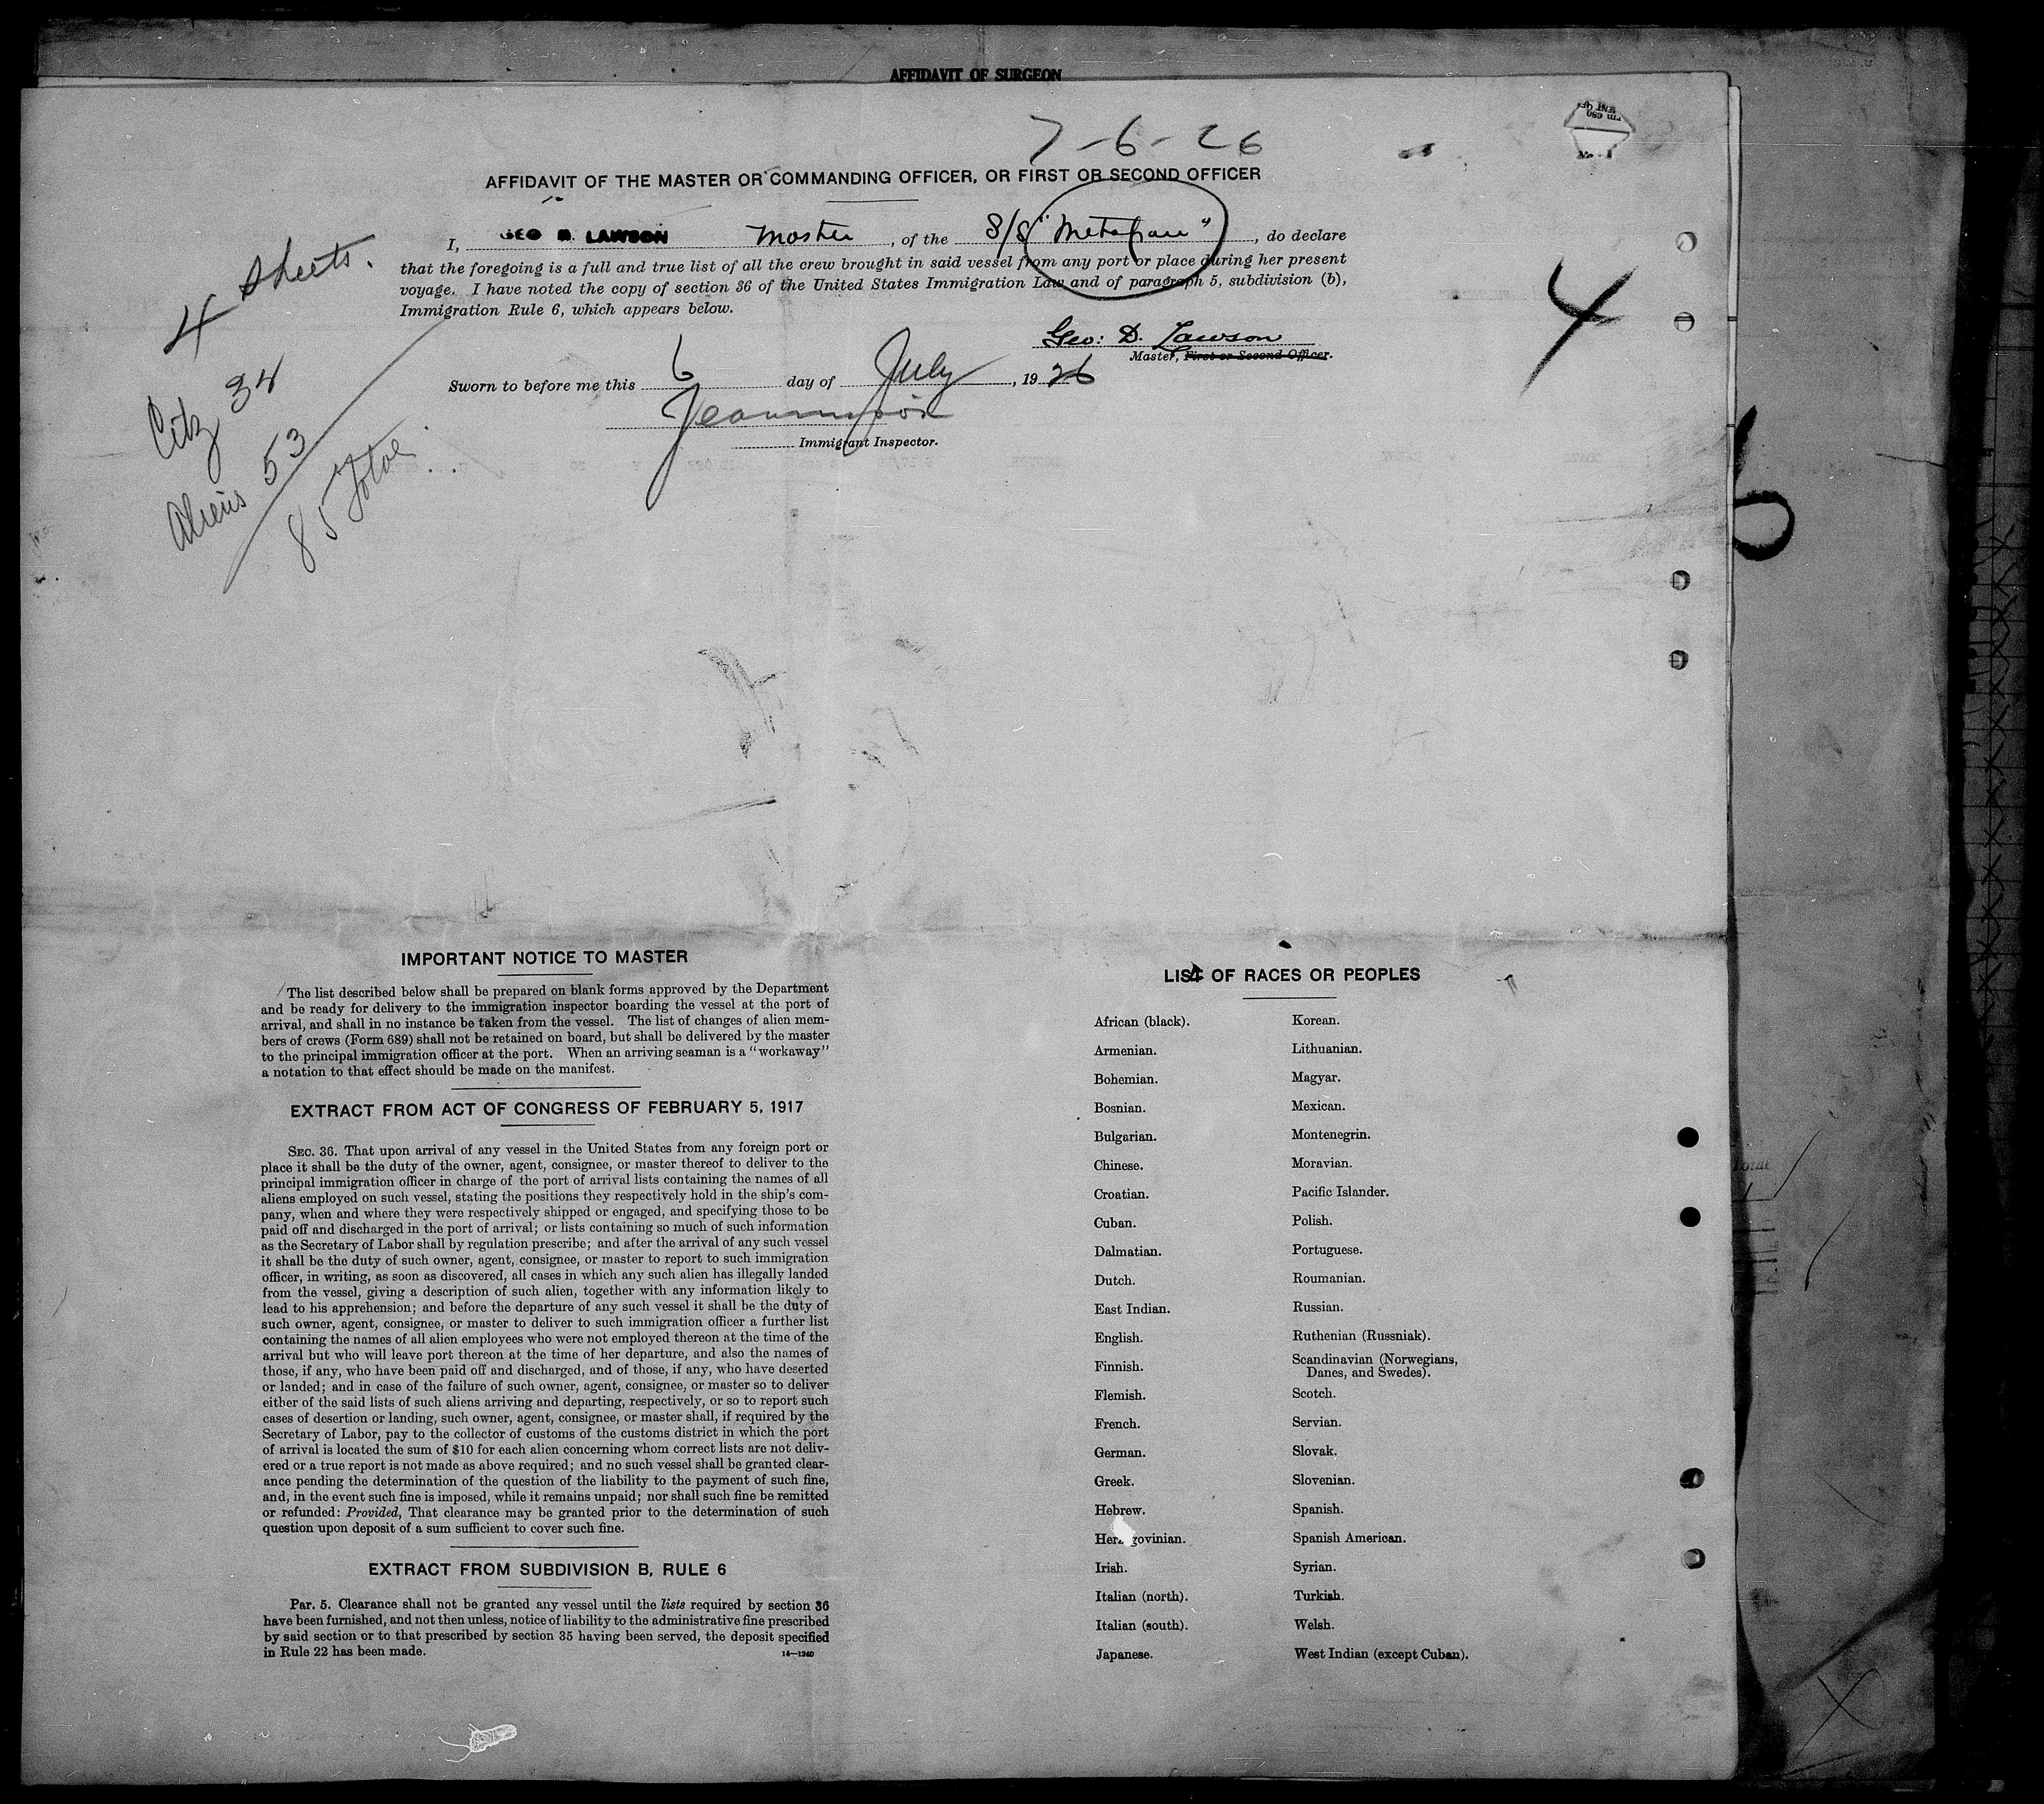 AFFIDAVIT OF SURGEON
7-6-26
AFFIDAVIT OF THE MASTER OR COMMANDING OFFICER, OR FIRST OR SECOND OFFICER
I, GEO D. LAWSON Master, of the S/S "Metapan", do declare
that the foregoing is a full and true list of all the crew brought in said vessel from any port or place during her present
voyage. I have noted the copy of section 36 of the United States Immigration Law and of paragraph 5, subdivision (b),
Immigration Rule 6, which appears below.
4 sheets.
4
Geo: D. Lawson
Master, First or Second Officer.
Sworn to before me this 6 day of July, 1926
Immigrant Inspector.
Citz 34
Aliens 53
85 Total
IMPORTANT NOTICE TO MASTER
The list described below shall be prepared on blank forms approved by the Department
and be ready for delivery to the immigration inspector boarding the vessel at the port of
arrival, and shall in no instance be taken from the vessel. The list of changes of alien mem-
bers of crews (Form 689) shall not be retained on board, but shall be delivered by the master
to the principal immigration officer at the port. When an arriving seaman is a "workaway"
a notation to that effect should be made on the manifest.
EXTRACT FROM ACT OF CONGRESS OF FEBRUARY 5, 1917
SEC. 36. That upon arrival of any vessel in the United States from any foreign port or
place it shall be the duty of the owner, agent, consignee, or master thereof to deliver to the
principal immigration officer in charge of the port of arrival lists containing the names of all
aliens employed on such vessel, stating the positions they respectively hold in the ship's com-
pany, when and where they were respectively shipped or engaged, and specifying those to be
paid off and discharged in the port of arrival; or lists containing so much of such information
as the Secretary of Labor shall by regulation prescribe; and after the arrival of any such vessel
it shall be the duty of such owner, agent, consignee, or master to report to such immigration
officer, in writing, as soon as discovered, all cases in which any such alien has illegally landed
from the vessel, giving a description of such alien, together with any information likely to
lead to his apprehension; and before the departure of any such vessel it shall be the duty of
such owner, agent, consignee, or master to deliver to such immigration officer a further list
containing the names of all alien employees who were not employed thereon at the time of the
arrival but who will leave port thereon at the time of her departure, and also the names of
those, if any, who have been paid off and discharged, and of those, if any, who have deserted
or landed; and in case of the failure of such owner, agent, consignee, or master so to deliver
either of the said lists of such aliens arriving and departing, respectively, or so to report such
cases of desertion or landing, such owner, agent, consignee, or master shall, if required by the
Secretary of Labor, pay to the collector of customs of the customs district in which the port
of arrival is located the sum of $10 for each alien concerning whom correct lists are not deliv-
ered or a true report is not made as above required; and no such vessel shall be granted clear-
ance pending the determination of the question of the liability to the payment of such fine,
and, in the event such fine is imposed, while it remains unpaid; nor shall such fine be remitted
or refunded: Provided, That clearance may be granted prior to the determination of such
question upon deposit of a sum sufficient to cover such fine.
EXTRACT FROM SUBDIVISION B, RULE 6
Par. 5. Clearance shall not be granted any vessel until the lists required by section 36
have been furnished, and not then unless, notice of liability to the administrative fine prescribed
by said section or to that prescribed by section 35 having been served, the deposit specified
in Rule 22 has been made.
14—1240
LIST OF RACES OR PEOPLES
African (black).
Armenian.
Bohemian.
Bosnian.
Bulgarian.
Chinese.
Croatian.
Cuban.
Dalmatian.
Dutch.
East Indian.
English.
Finnish.
Flemish.
French.
German.
Greek.
Hebrew.
Herzegovinian.
Irish.
Italian (north).
Italian (south).
Japanese.
Korean.
Lithuanian.
Magyar.
Mexican.
Montenegrin.
Moravian.
Pacific Islander.
Polish.
Portuguese.
Roumanian.
Russian.
Ruthenian (Russniak).
Scandinavian (Norwegians,
Danes, and Swedes).
Scotch.
Servian.
Slovak.
Slovenian.
Spanish.
Spanish American.
Syrian.
Turkish.
Welsh.
West Indian (except Cuban).